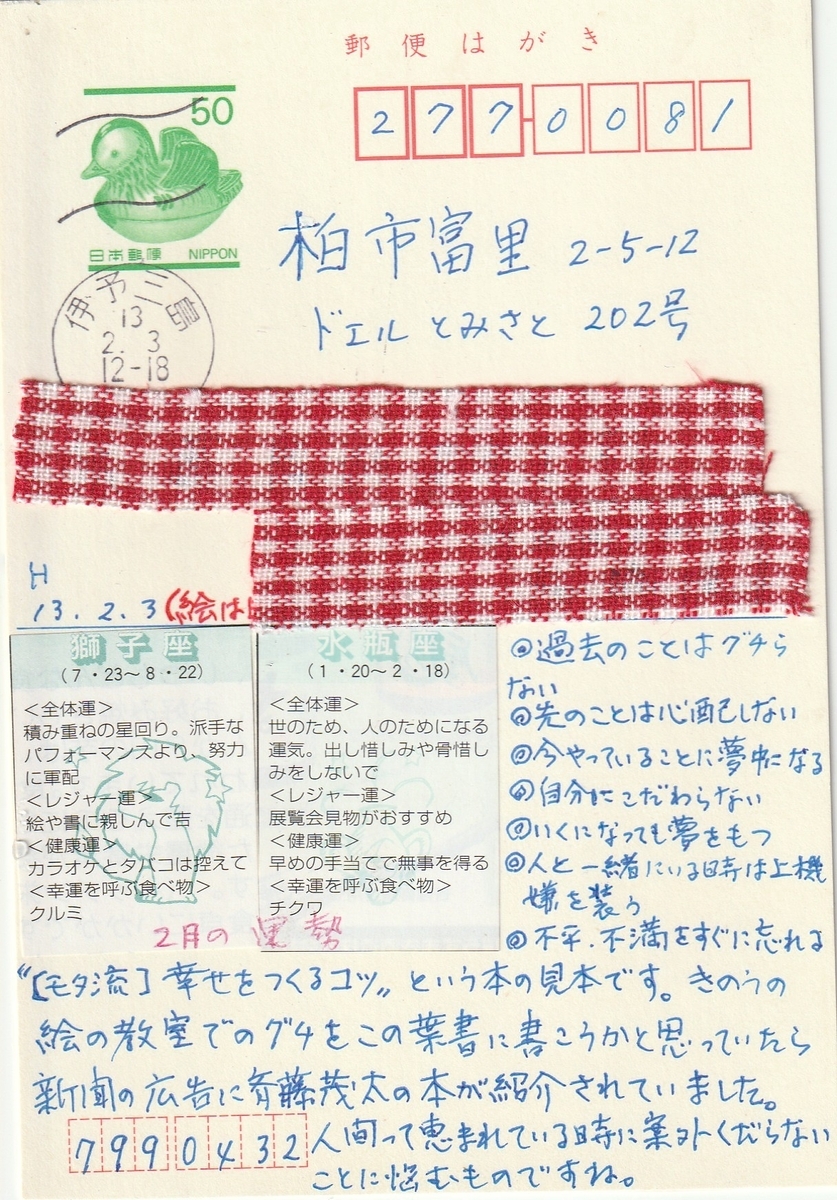 郵便はがき
50
日本郵便 NIPPON
277-0081
柏市富里 2-5-12
ドエルとみさと 202号
伊予三島
13
2. 3
12-18
H
13.2.3(絵は
獅子座
(7・23〜8・22)
<全体運>
積み重ねの星回り。派手な
パフォーマンスより、努力
に軍配
<レジャー運>
絵や書に親しんで吉
<健康運>
カラオケとタバコは控えて
<幸運を呼ぶ食べ物>
クルミ
水瓶座
(1・20〜2・18)
<全体運>
世のため、人のためになる
運気。出し惜しみや骨惜し
みをしないで
<レジャー運>
展覧会見物がおすすめ
<健康運>
早めの手当てで無事を得る
<幸運を呼ぶ食べ物>
チクワ
2月の運勢
◎過去のことはグチら
ない
◎先のことは心配しない
◎今やっていることに夢中になる
◎自分にこだわらない
◎いくになっても夢をもつ
◎人と一緒にいる時は上機
嫌を装う
◎不平.不満をすぐに忘れる
“[モタ流]幸せをつくるコツ〟という本の見本です。きのうの
絵の教室でのグチをこの葉書に書こうかと思っていたら
新聞の広告に斉藤茂太の本が紹介されていました。
人間って恵まれている時に案外くだらない
ことに悩むものですね。
7990432